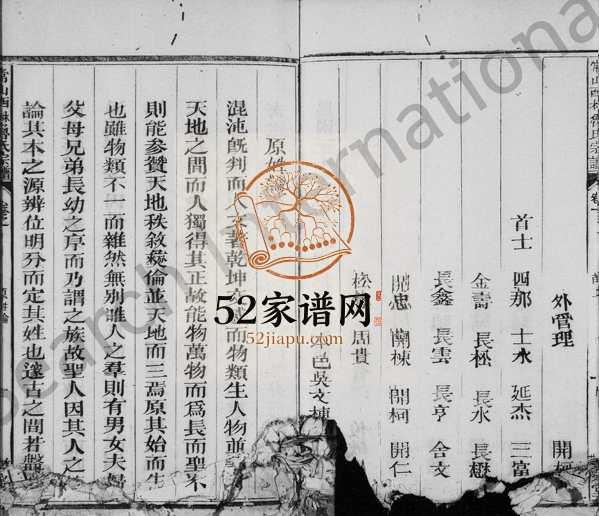 常山西林魯氏宗譜
外管理
開柯
首士 四那 士水 延杰 三富
金壽 長松 長水 長懋
長鑫 長雲 長亨 合文
開忠 蘭棟 開柯 開仁
松 周貴
邑吳文棟
原姓
混沌既判而人文著乾坤 而物類生人物並
天地之間而人獨得其正故能物萬物而爲長而聖不
則能參贊天地秩敘彝倫並天地而三焉原其始而生
也雖物類不一而雜然無別惟人之羣則有男女夫婦
父母兄弟長幼之序而乃謂之族故聖人因其人之
論其本之源辨位明分而定其姓也邃古之間若盤
常山西林魯氏宗譜
卷之
原姓論
52家谱网
52jiapu.com
Search International